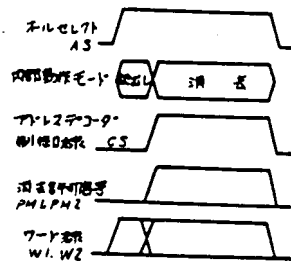 オールセレクト
AS
内部動作モード
読出し 消去
アドレスデコーダー
制御回路 CS
消去許可信号
PM1, PM2
ワード線
W1, W2